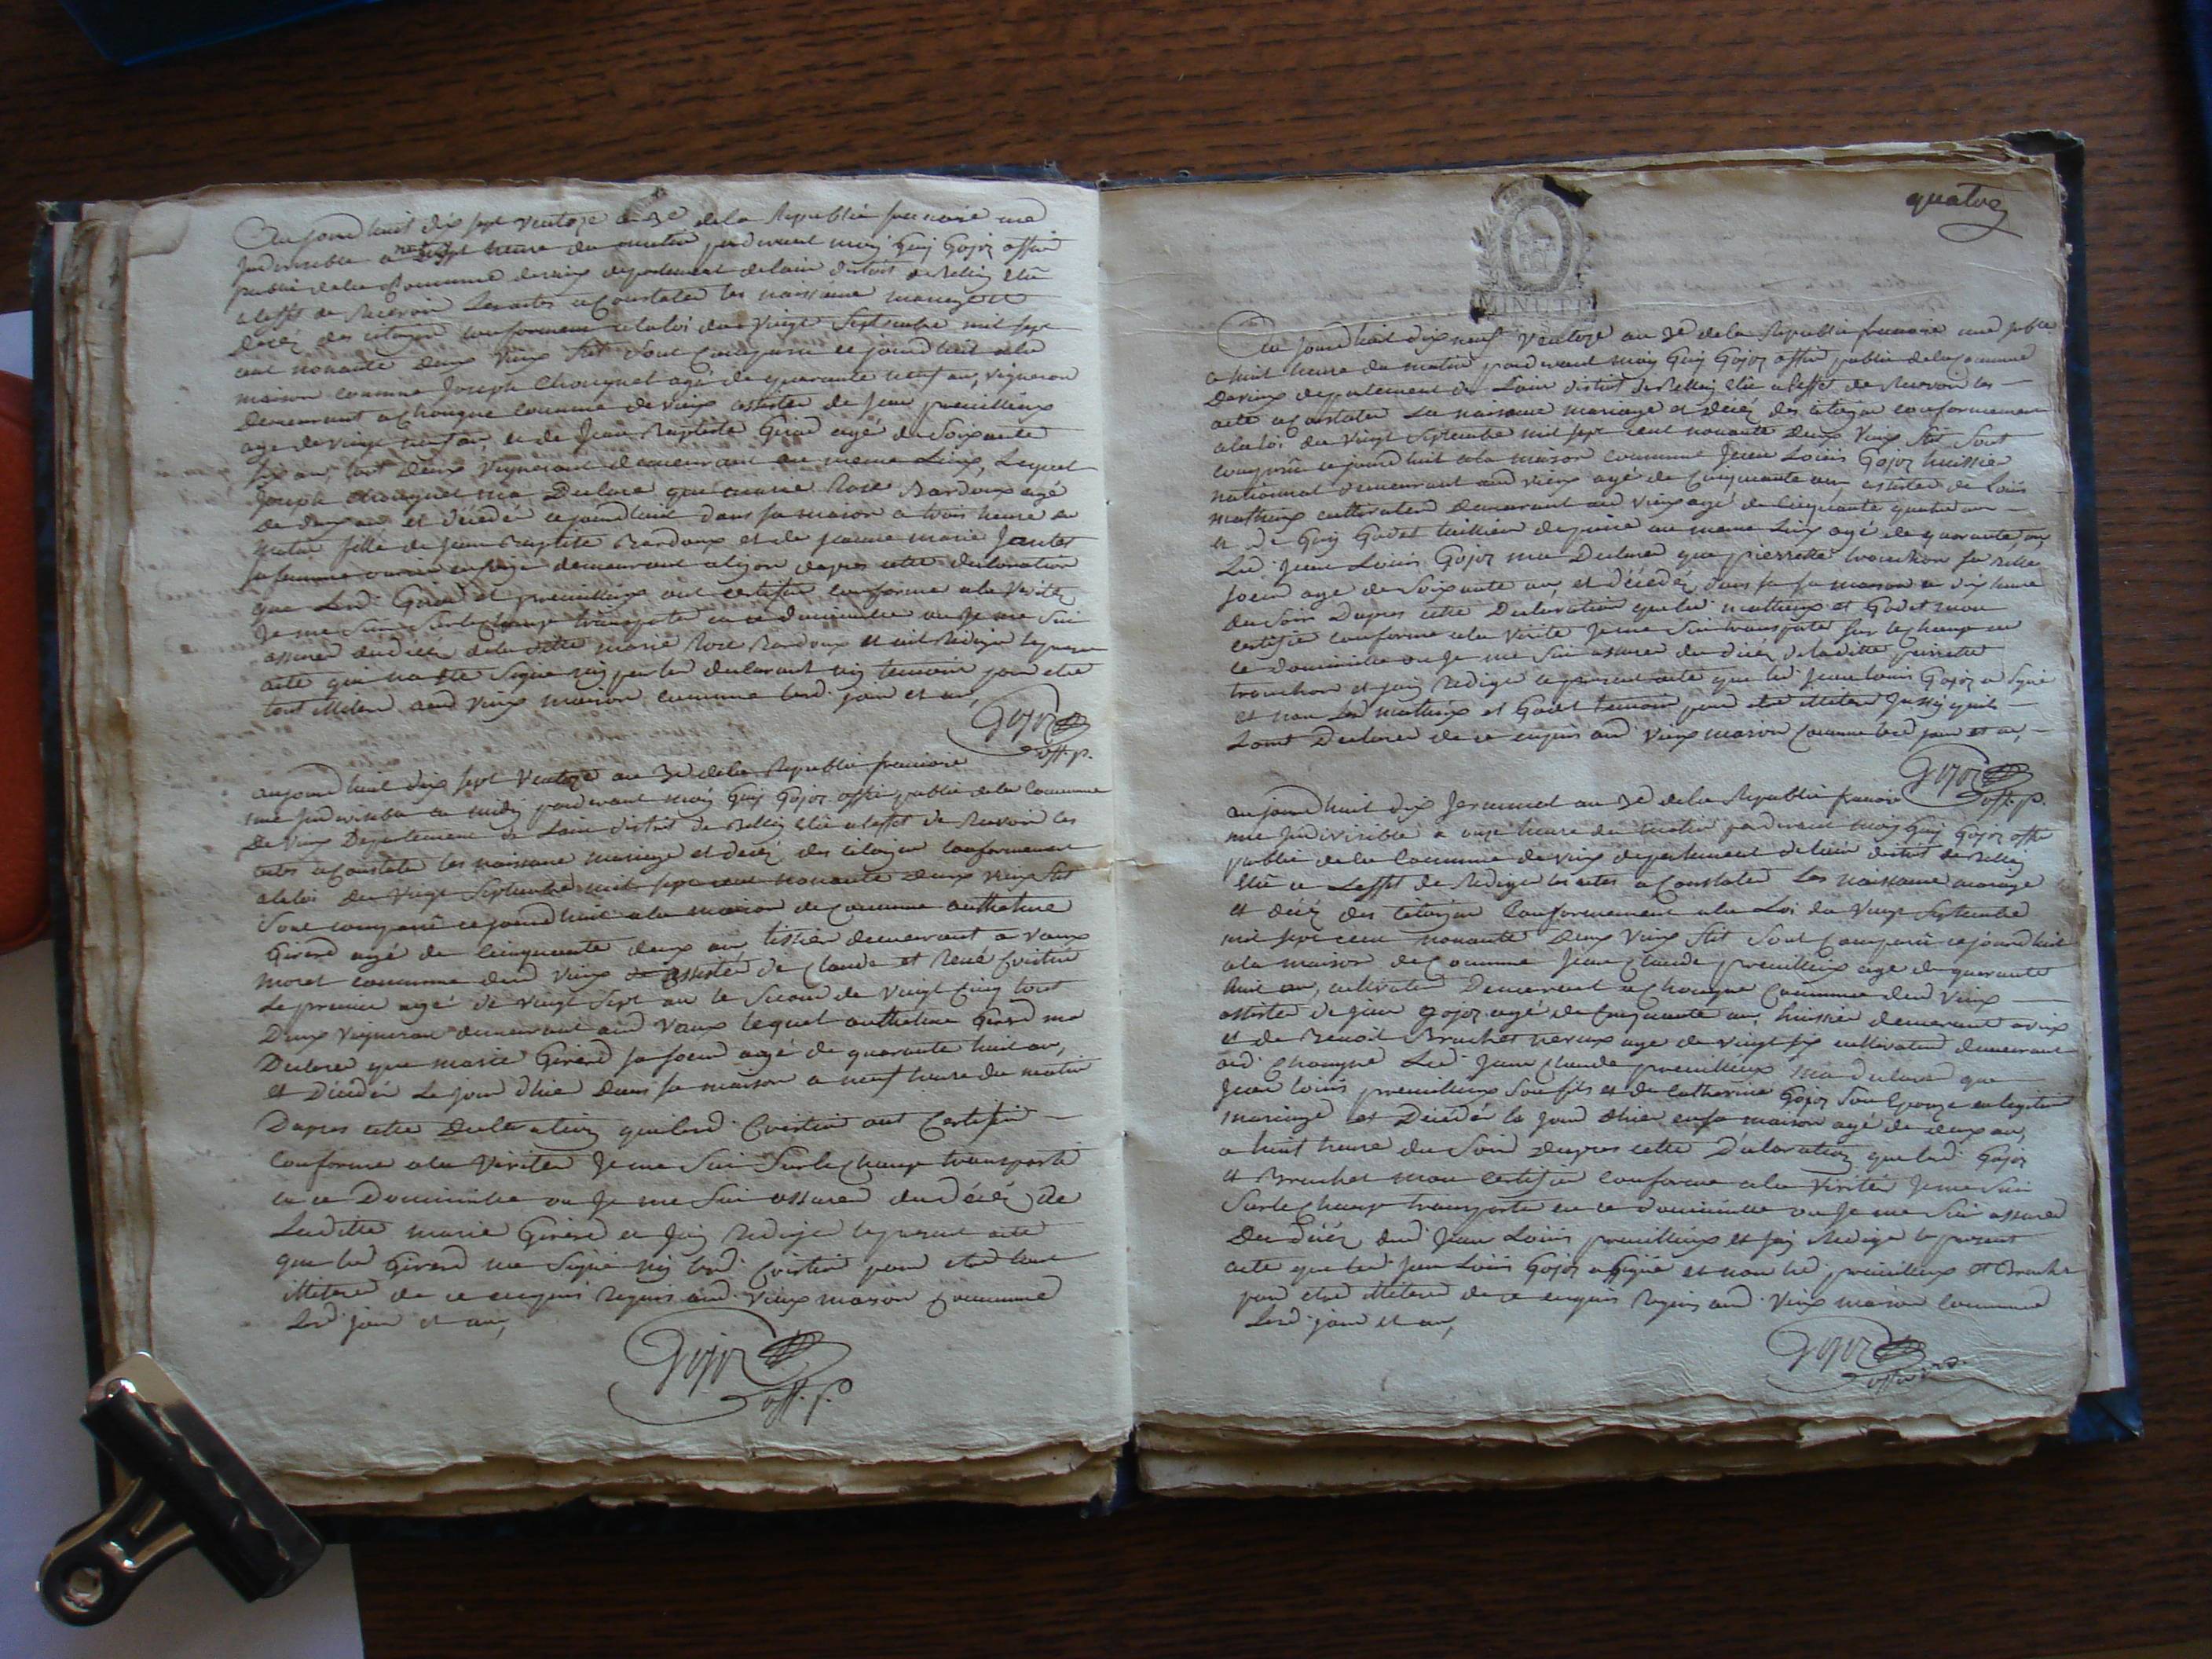 Aujourdhuit dix sept ventoze an 3e de la Republie francoise une
Indivisible a sept heure du matin pardevant moy Guy Gojoz offié
public de la Commune de vieux departement de lain distrit de Belley élû
a leffet de Recevoir les actes a Constater les naissance mariage et
Decéz des citoyen conformement a la loi du Vingt Septembre mil sept
cent nonante deux Vieux stil Sont Comparu ce jourdhuit a la
maison commune Joseph Chougnet agé de quarante neuf an, vigneron
Demeurant a Chongne commune de vieux assister de Jean premillieux
age de vingt neuf an, et de Jean Baptiste Girad agé de Soixante
six an, tout Deux Vigneront demeurant au meme Lieux, Lequel
Joseph Chougnet ma Declaré que marie Rose Bardoux agé
de deux an et décédé ce jourdhuit dans sa maison a trois heure du
matin fille de Jean Baptiste Bardoux et de jeanne marie
sa femme demeurant a lion dapres cette declaration
que Led. Girad et premillieux ont certifié conforme a la Verité
Je me Sui Surlechamp transporté en ce domimile ou Je me Sui
assurer du décéz de la ditte marie Rose Bardoux et ait Rediger le present
acte qui na été Signe ny par led declarant ny temoin pour etre
tout illiteré aud Vieux maison commune lesd. jour et an,
Gojoz
off. p.
aujourdhuit dix sept Ventoze an 3e de la Republie francoise
une Indivisible a midy pardevant moy Guy Gojoz offié public de la Commune
De Vieux Departement de Lain distrit de Belley élû a leffet de Recevoir les
actes a Constater les naissance mariage et decéz des citoyen conformement
a la loi du Vingt Septembre mil sept cent nonante deux vieux stil
Sont comparû ce jourdhuit a la maison de Commune anthelme
Girerd agé de Cinquante deux an tissier demeurant a Vaux
moret commune dud Vieux assister de Claude et René Cristin
Le premier agé de vingt Sept an le Second de Vingt Cinq tout
Deux Vigneron demeurant aud Vaux lequel anthelme Girerd ma
Declaré que marie Girerd sa soeur agé de quarante huit an,
et Décédée Le jour dhier dans sa maison a neuf heure du matin
Dapres cette Declaration que lesd. Cristin ont Certifié —
Conforme a la Verité Je me Sui Surlechamp transporté
en ce Domimile ou Je me Sui assurer du décéz De
Laditte marie Girerd et Jay Rediger le present acte
que led Girerd ne Signe ny lesd. Cristin pour etre tout
illiteré de ce enquis Requis aud. Vieux maison Commune
Lesd. jour et an,
Gojoz
off. p.
quatre
MINUTE
Au jourdhuit dix neuf Ventoze an 3e de la Republie francoise une
a huit heure du matin pardevant moy Guy Gojoz offié public de la Commune
De vieux departement de Lain distrit de Belley élû a leffet de Recevoir les —
acte a Constater La naissance mariage et Décéz des citoyen conformement
a la loi du Vingt Septembre mil sept cent nonante Deux Vieux Stil Sont
comparûe ce jourdhuit a la maison commune Jean Loüis Gojoz huissier
national demeurant aud vieux agé de Cinquante an, assister de Loüis
mathieux cultivateur demeurant aud vieux agé de Cinquante quatre an —
et de Guy Godet taillieur de pierre au meme Lieux agé de quarante an,
Led Jean Loüis Gojoz ma Declaré que pierrette tronchon sa belle
soeur age de Soixante an, et décédée, dans sa maison a dix heure
du Soir Dapres cette Declaration que led mathieux et Godet mon
certifié conforme a la Verité Je me Sui transporté Sur le champ en
ce domimile ou Je me Sui assurer du décéz de laditte pierrette
tronchon et jay Rediger le present acte que led Jean Louis Gojoz a Signe
et non Led mathieux et Godet temoin pour etre illiteré —
Sont Declarer de ce enquis aud Vieux maison Commune lesd jour et an, —
Gojoz
off. p.
aujourdhuit dix Jerminal an 3e de la Republie francoise
une Indivisible a onze heure du matin pardevant moy Guy Gojoz offié
public de la Commune de vieux departement de lain distrit de Belley
élû a Leffet de Rediger les actes a Constater Les naissance mariage
et décéz des Citoyen Conformement a la Loi du Vingt Septembre
mil sept cent nonante Deux Vieux Stil Sont Comparû ce jourdhuit
a la maison de Commune Jean Claude premillieux age de quarante
huit an, cultivateur Demeurant a Chongne Commune dud Vieux —
assister de jean gojoz agé de Cinquante an, huissier demeurant a vieux
et de Benoit Brachet neveux age de vingt six cultivateur demeurant
aud Chongne Led. Jean Claude premillieux ma declaré que
Jean loüis premillieux Son fils et de Catherine Gojoz Son Epouze en legitime
mariage et Décédé le jour dhier en sa maison agé de deux an,
a huit heure du Soir dapres cette Déclaration que led. Gojoz
et Brachet mon certifié conforme a la Verité Je me Sui
Surlechamp transporté en ce domimile ou Je me Sui assurer
Du décéz dud Jean Loüis premillieux et jay Rediger le present
acte que led Jean Loüis Gojoz a Signe et non led. premillieux et Brachet
pour etre illiteré de ce enquis Requis aud Vieux maison Commune
Lesd. jour et an,
Gojoz